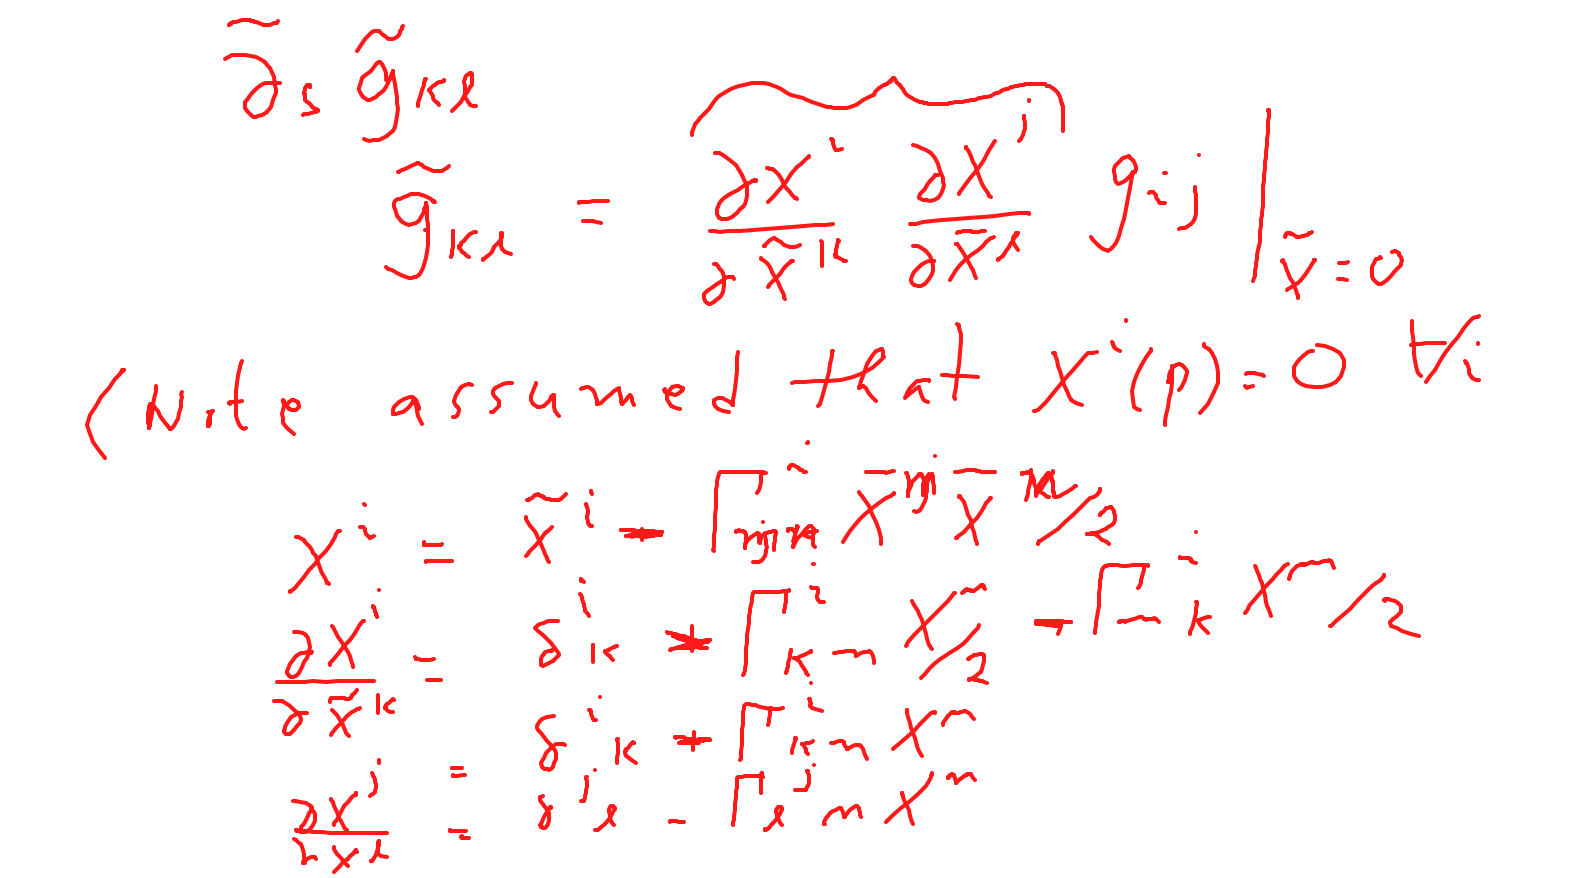 ∂̃_s g̃_{kl}
g̃_{kl} = ∂x^i/∂x̃^k ∂x^j/∂x̃^l g_{ij} |_{x̃=0}
(Note assumed that x^i(p)=0 ∀i
x^i = x̃^i - Γ^i_{mn} x̄^m x̄^n/2
∂x^i/∂x̃^k = δ^i_k - Γ^i_{km} x^m/2 - Γ^i_{mk} x^m/2
= δ^i_k - Γ^i_{km} x^m
∂x^j/∂x^l = δ^j_l - Γ^j_{lm} x^m